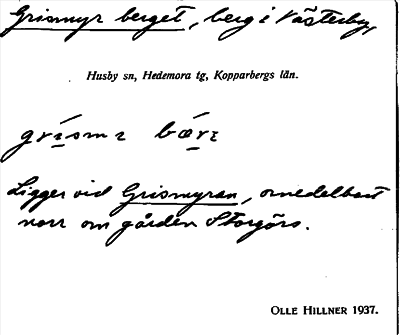 Grismyr berget, berg i Västerby,
Husby sn, Hedemora tg, Kopparbergs län.
Ligger vid Grismyran, omedelbart
norr om gården Storgörs.
OLLE HILLNER 1937.